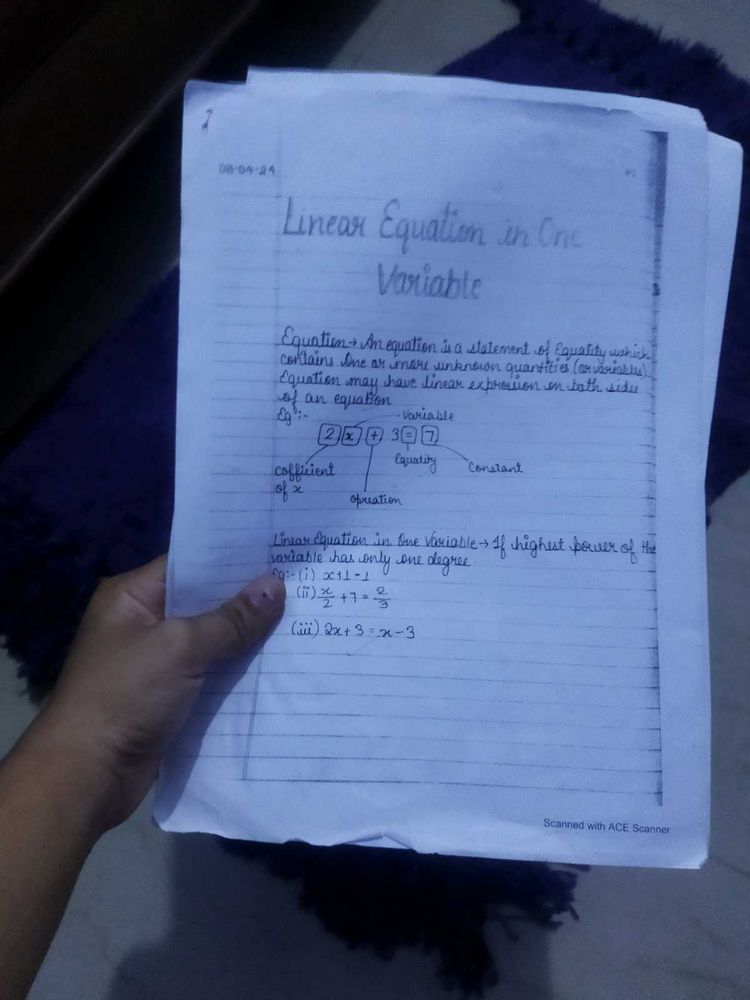 08-04-24
Linear Equation in One
Variable
Equation → An equation is a statement of Equality which
contains One or more unknown quantities (or variables)
Equation may have linear expression on both sides
of an equation
Eg :-
variable
2 x + 3 = 7
cofficient
of x
opreation
Equality
Constant
Linear Equation in One Variable → If highest power of the
variable has only one degree.
Eg:- (i) x+1=1
(ii) x/2 + 7 = 2/3
(iii) 2x+3 = x-3
Scanned with ACE Scanner